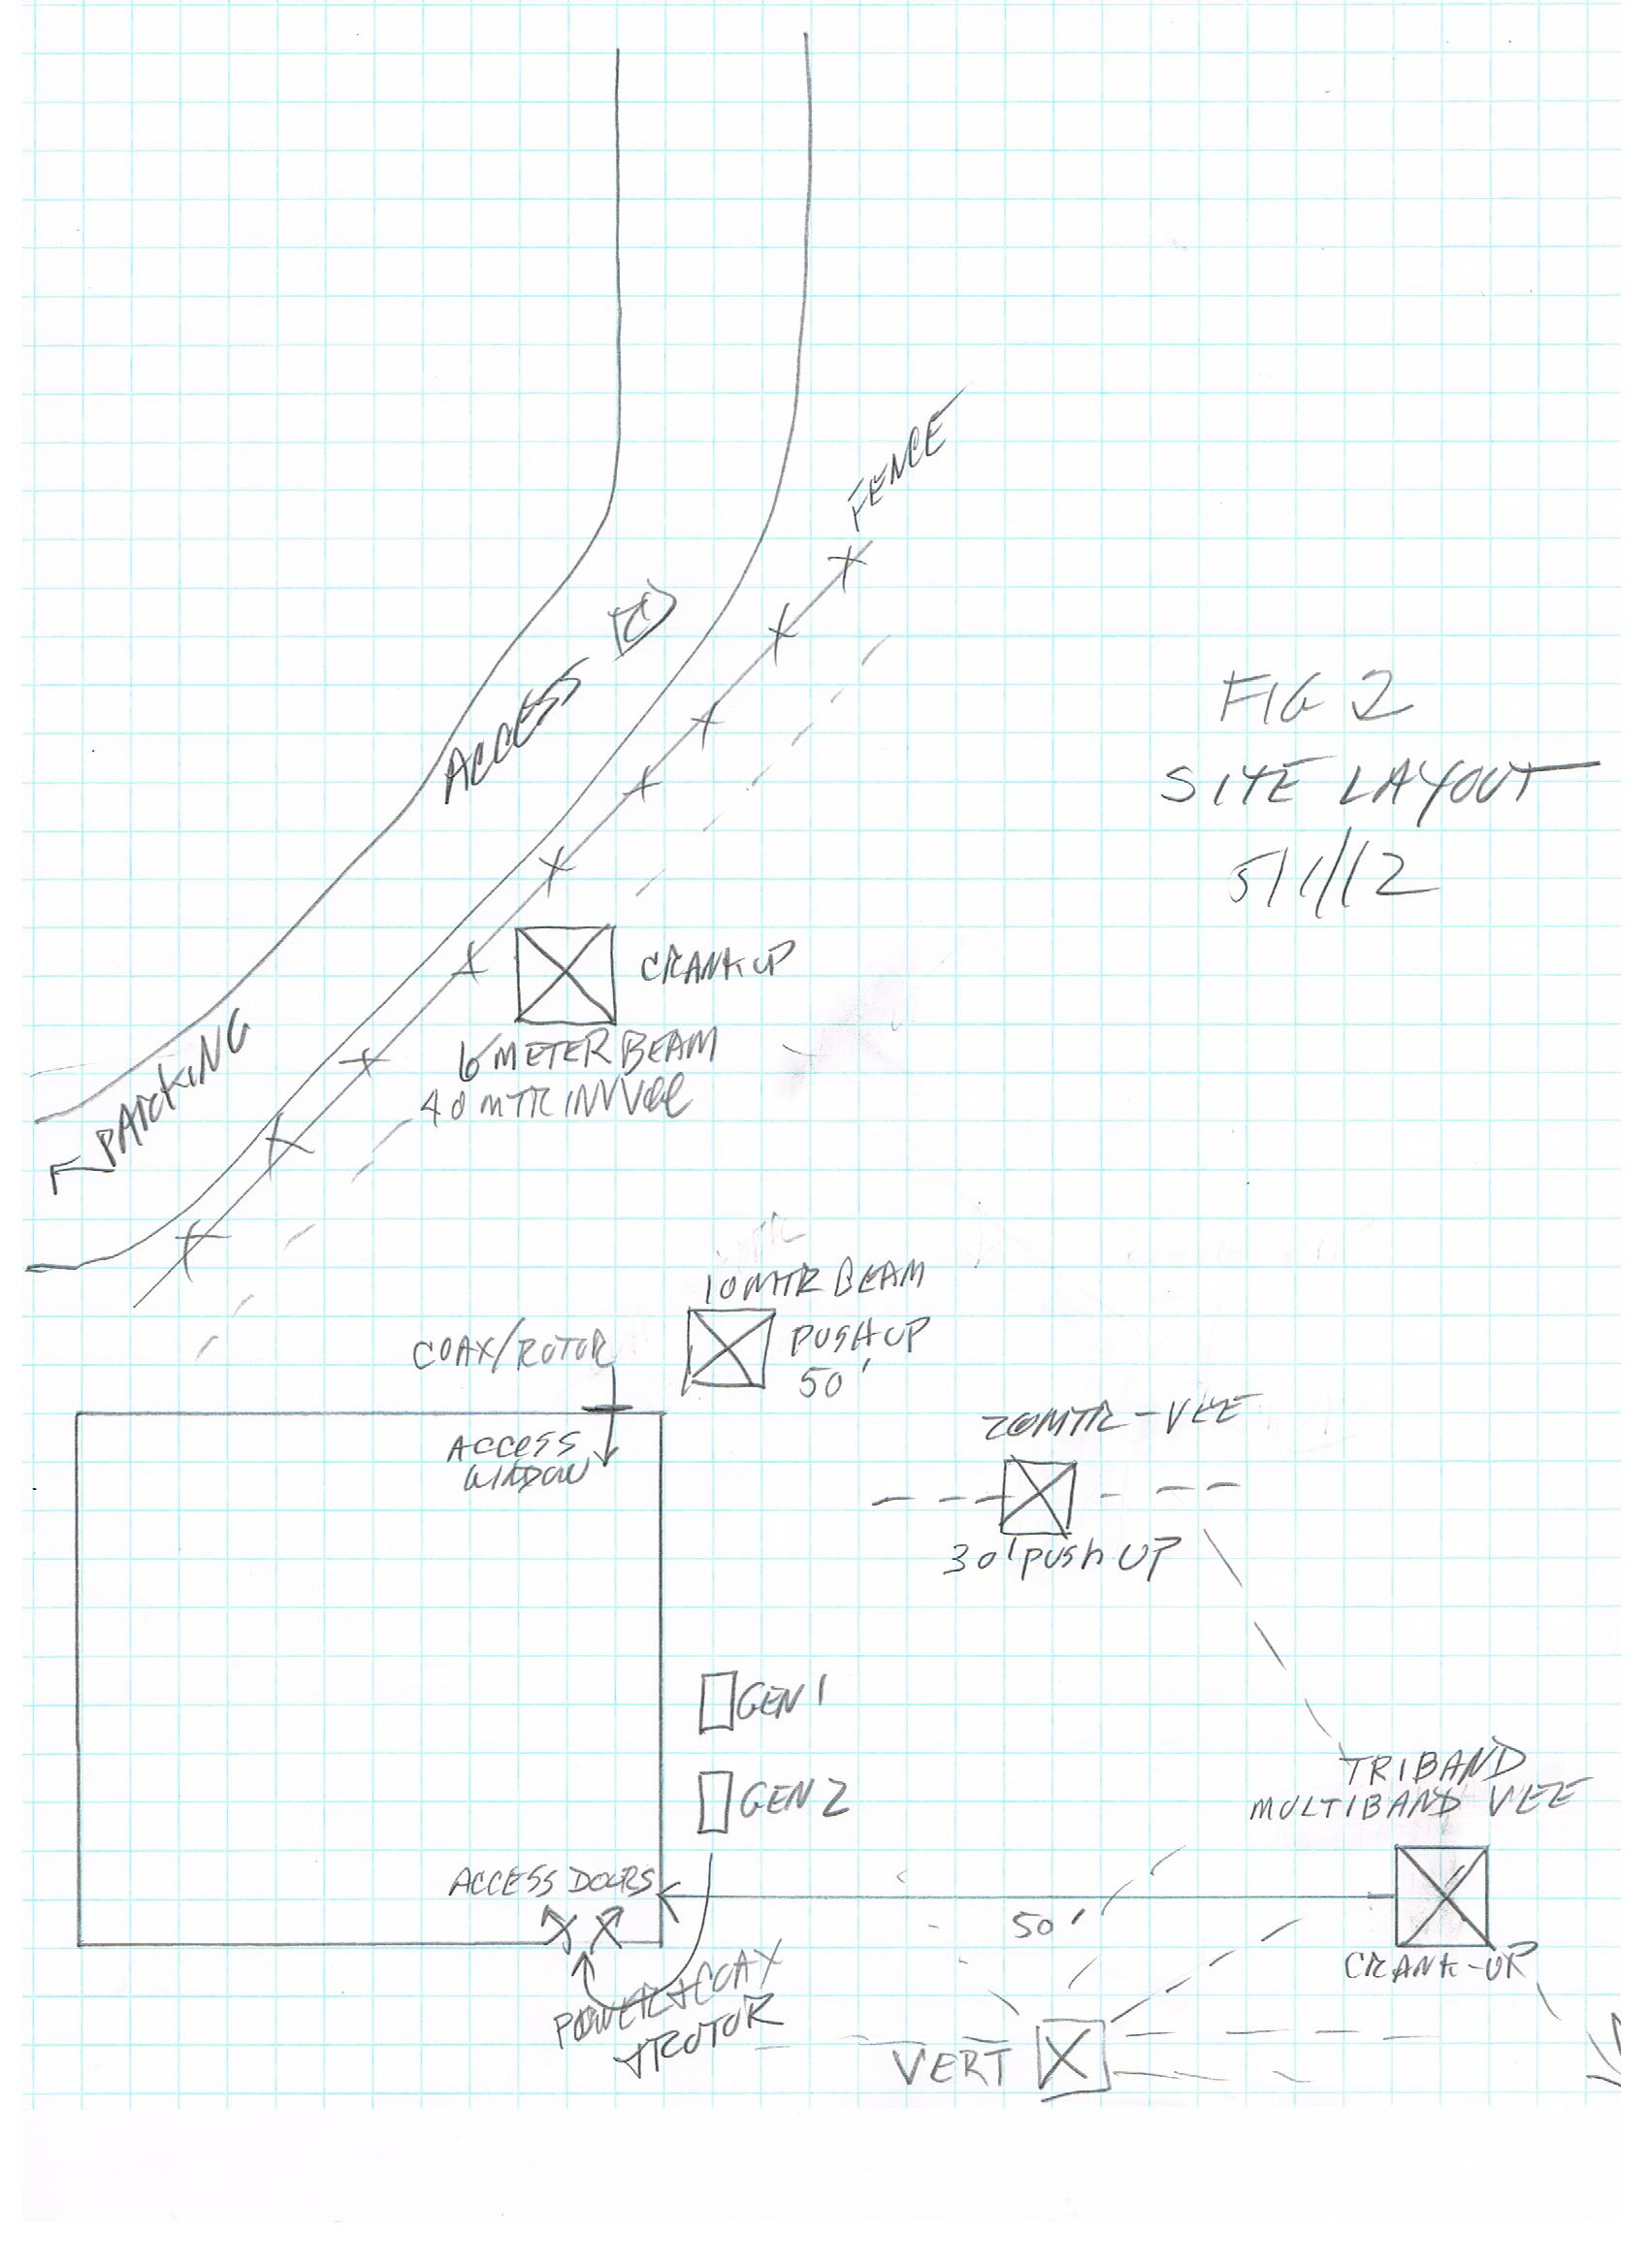 FENCE
ACCESS RD
FIG 2
SITE LAYOUT
5/1/12
CRANKUP
6 METER BEAM
40 MTR INV Vee
PARKING
10 MTR BEAM
PUSHUP
50'
COAX/ROTOR
ACCESS
WINDOW
20MTR-VEE
30' PUSh UP
GEN 1
GEN 2
TRIBAND
MULTIBAND VEE
ACCESS DOORS
50'
CRANK-UP
POWER + COAX
+ ROTOR
VERT